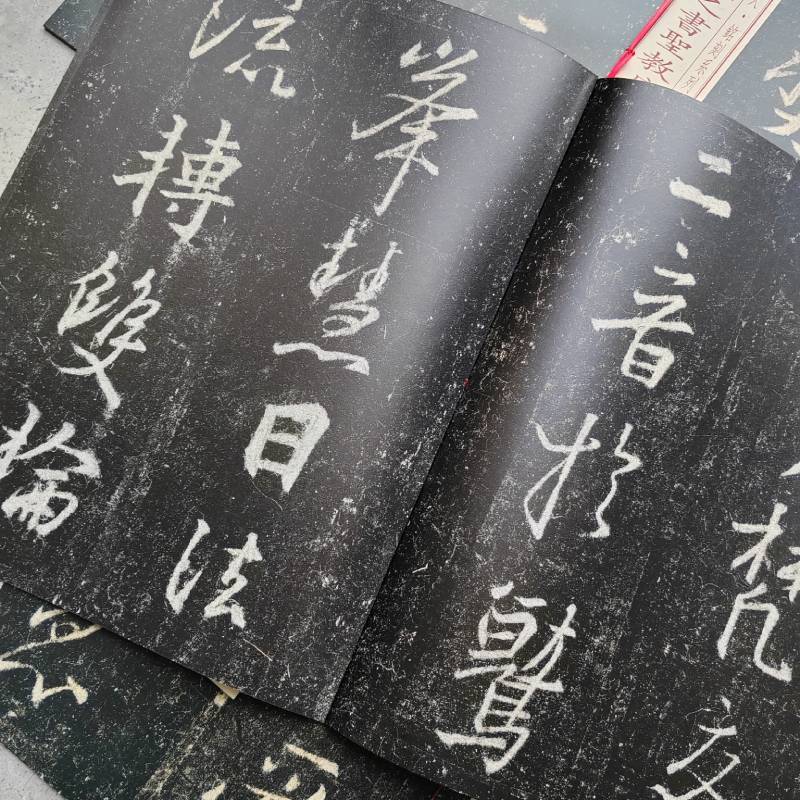 之書聖教
梵交
二音於鷲
峯慧日法
流轉雙輪